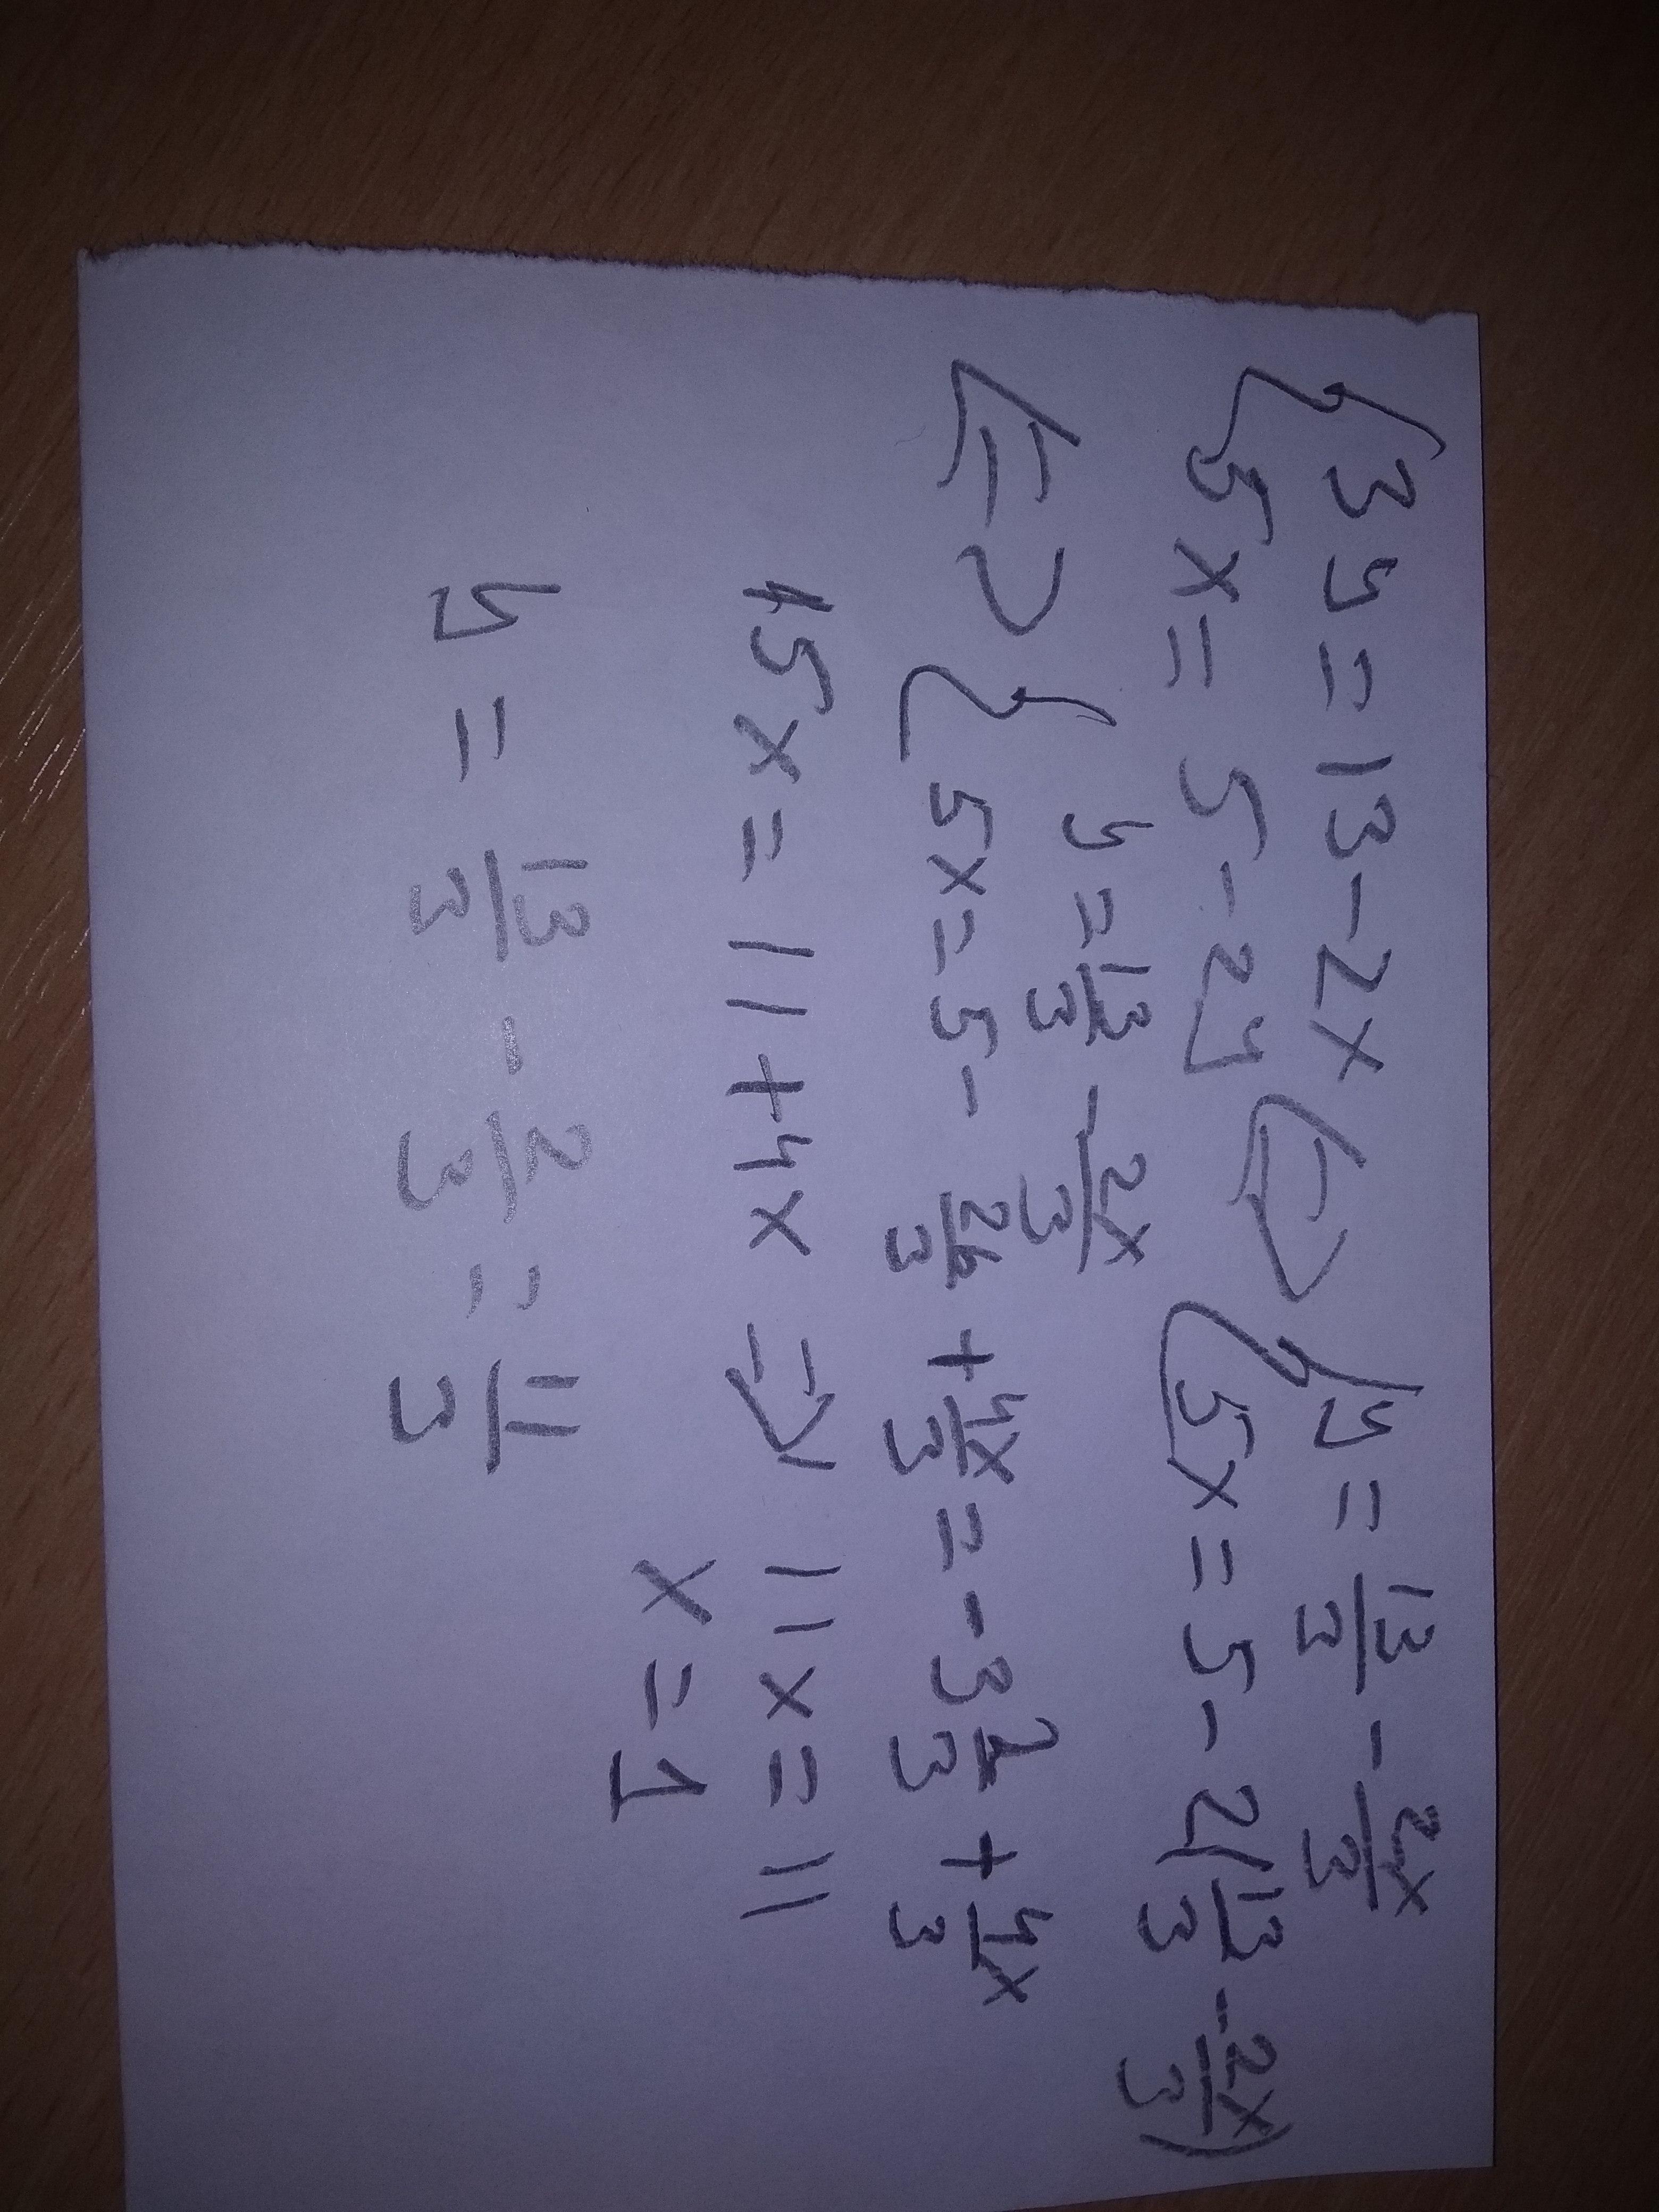 {3y = 13 - 2x <=> {y = 13/3 - 2x/3
{5x = 5 - 2y {5x = 5 - 2(13/3 - 2x/3)
<=> {y = 13/3 - 2x/3
{5x = 5 - 26/3 + 4x/3 = -3 2/3 + 4x/3
15x = 11 + 4x => 11x = 11
x = 1
y = 13/3 - 2/3 = 11/3